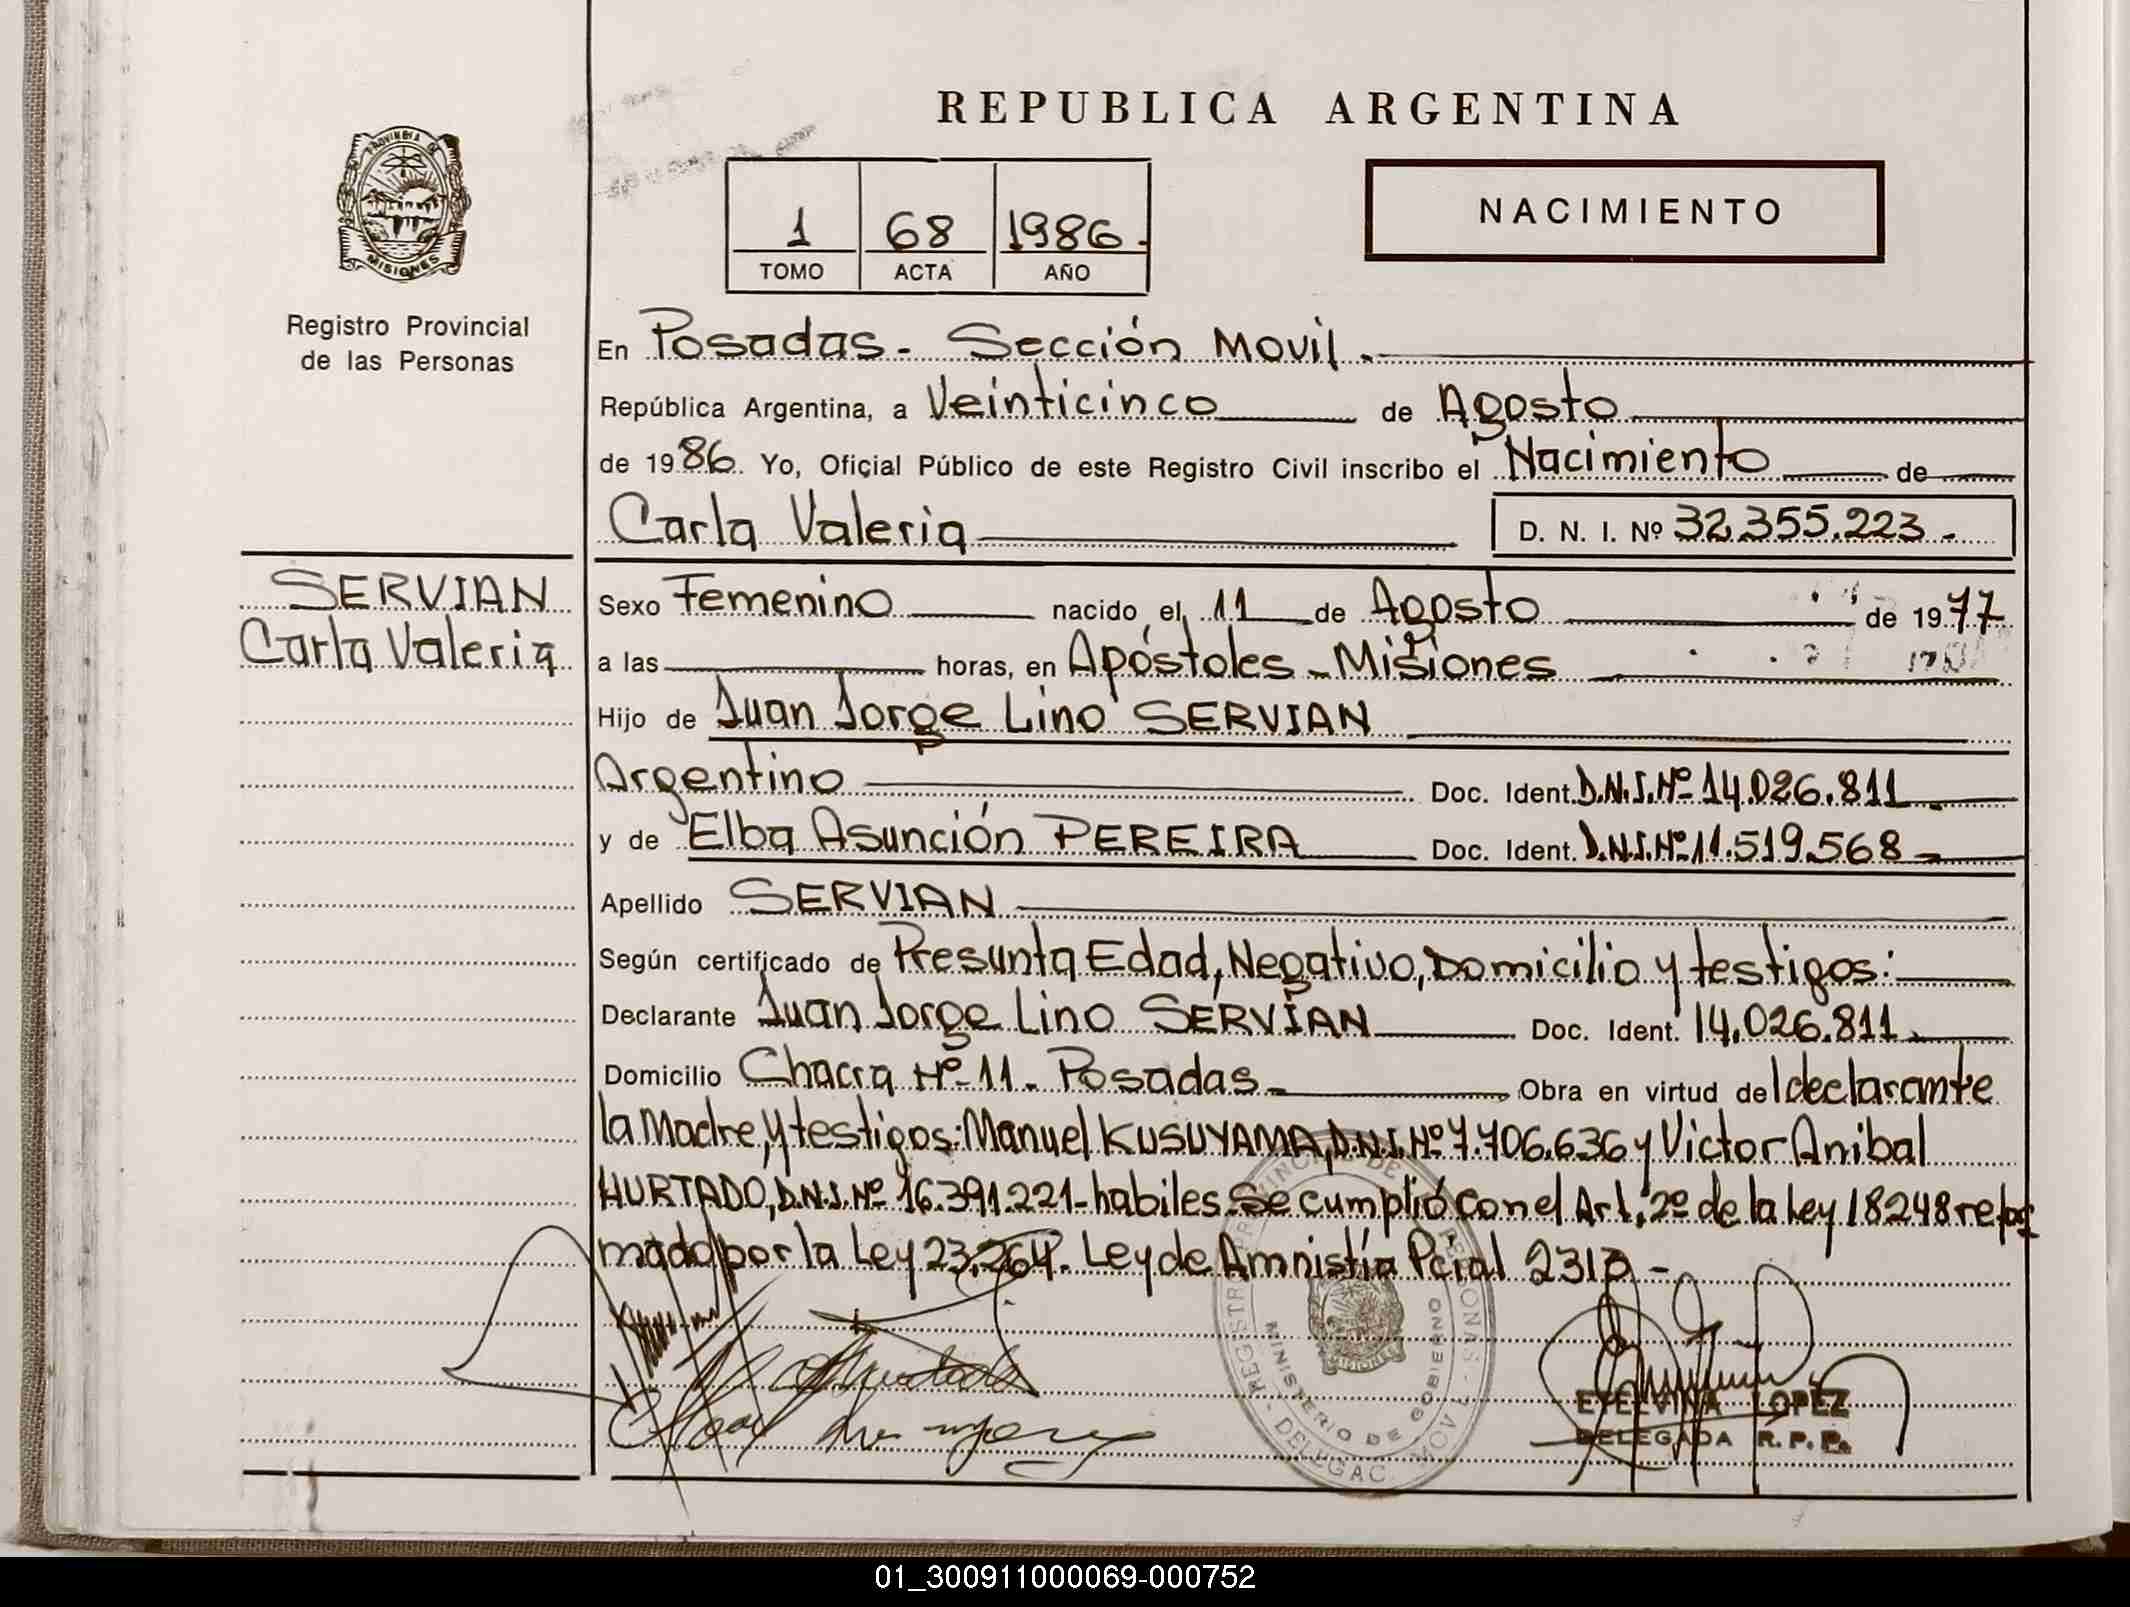 REPUBLICA ARGENTINA
PROVINCIA DE
MISIONES
1 68 1986.
TOMO ACTA AÑO
NACIMIENTO
Registro Provincial
de las Personas
En Posadas - Sección Movil.
República Argentina, a Veinticinco de Agosto
de 1986. Yo, Oficial Público de este Registro Civil inscribo el Nacimiento de
Carla Valeria D. N. I. Nº 32.355.223.-
SERVIAN
Carla Valeria
Sexo Femenino nacido el 11 de Agosto de 1977
a las horas, en Apóstoles - Misiones
Hijo de Juan Jorge Lino SERVIAN
Argentino Doc. Ident. D.N.I. Nº 14.026.811.
y de Elba Asunción PEREIRA Doc. Ident. D.N.I. Nº 11.519.568.-
Apellido SERVIAN
Según certificado de Presunta Edad, Negativo, Domicilio y testigos:
Declarante Juan Jorge Lino SERVIAN Doc. Ident. 14.026.811.
Domicilio Chacra Nº 11. Posadas.- Obra en virtud del declarante
la Madre, y testigos: Manuel KUSUYAMA, D.N.I. Nº 7.706.636 y Victor Anibal
HURTADO, D.N.I. Nº 16.391.221- habiles. Se cumplió con el Art. 2º de la Ley 18248 refor
mado por la Ley 23.264. Ley de Amnistía Pcial 2310-
MINISTERIO DE GOBIERNO
ETELVINA LOPEZ
DELEGADA R. P. P.
01_300911000069-000752